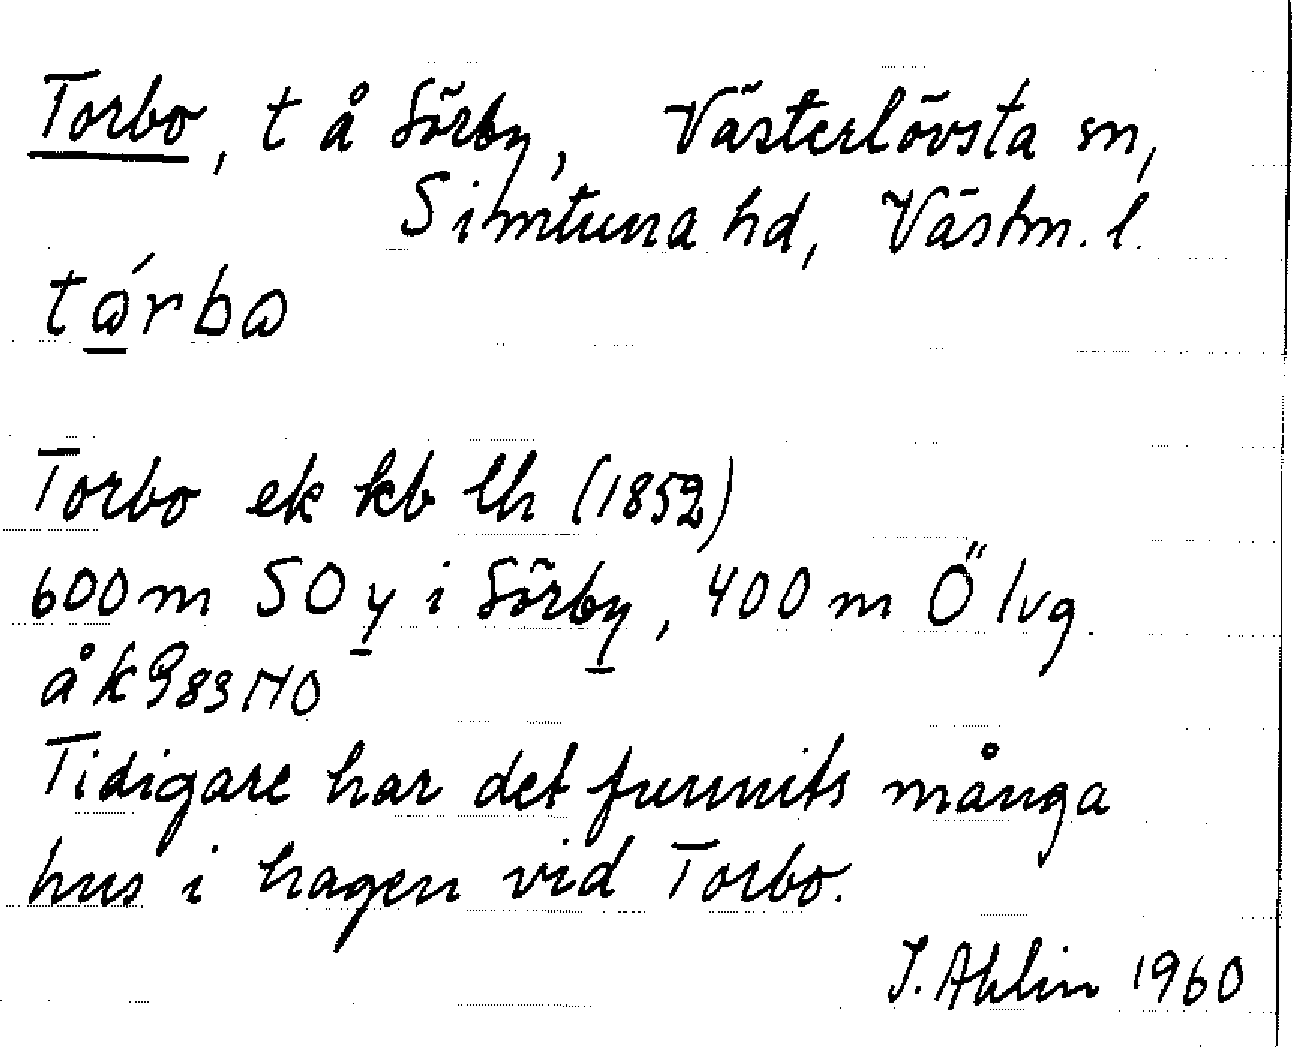 Torbo, t å Sörby, Västerlövsta sn,
Simtuna hd, Västm. l.
tórbo
Torbo ek kb lh (1852)
600m SO y i Sörby, 400m Ö lvg.
åk 983 NO
Tidigare har det funnits många
hus i hagen vid Torbo.
J. Ahlin 1960